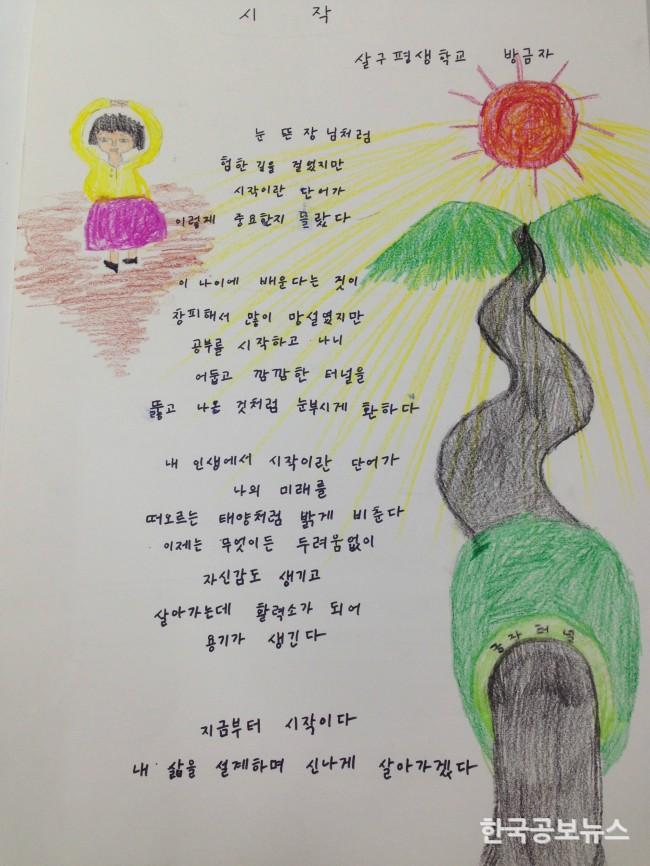 시작
살구평생학교 방금자
눈 뜬 장님처럼
험한 길을 걸었지만
시작이란 단어가
이렇게 중요한지 몰랐다
이 나이에 배운다는 것이
창피해서 많이 망설였지만
공부를 시작하고 나니
어둡고 깜깜한 터널을
뚫고 나온 것처럼 눈부시게 환하다
내 인생에서 시작이란 단어가
나의 미래를
떠오르는 태양처럼 밝게 비춘다
이제는 무엇이든 두려움없이
자신감도 생기고
살아가는데 활력소가 되어
용기가 생긴다
금자터널
지금부터 시작이다
내 삶을 설계하며 신나게 살아가겠다
한국공보뉴스